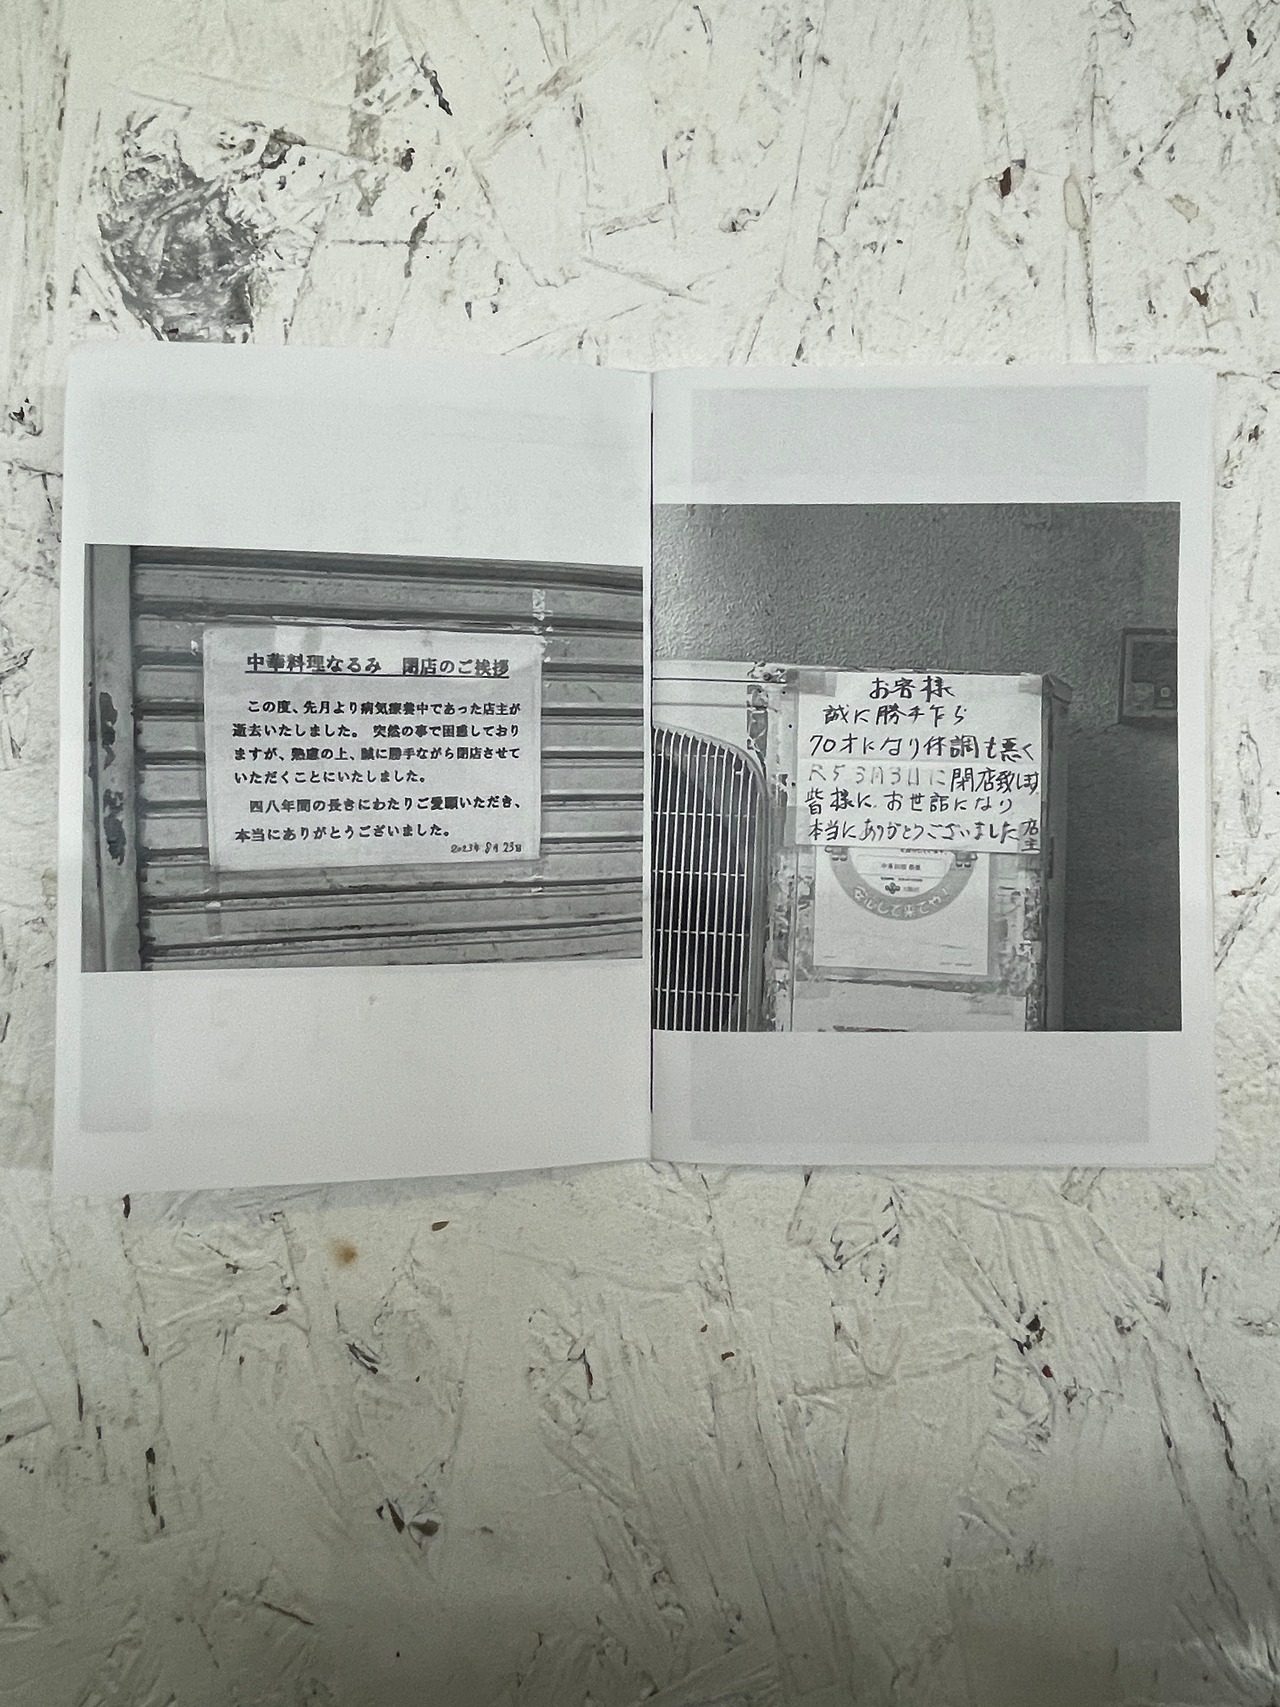 中華料理なるみ　閉店のご挨拶
この度、先月より病気療養中であった店主が
逝去いたしました。 突然の事で困惑しており
ますが、熟慮の上、誠に勝手ながら閉店させて
いただくことにいたしました。
四八年間の長きにわたりご愛顧いただき、
本当にありがとうございました。
2023年8月23日
お客様
誠に勝手乍ら
70才になり体調も悪く
R5 3月3日に閉店致します
皆様に お世話になり
本当にありがとうございました 店主
安心して来てや!